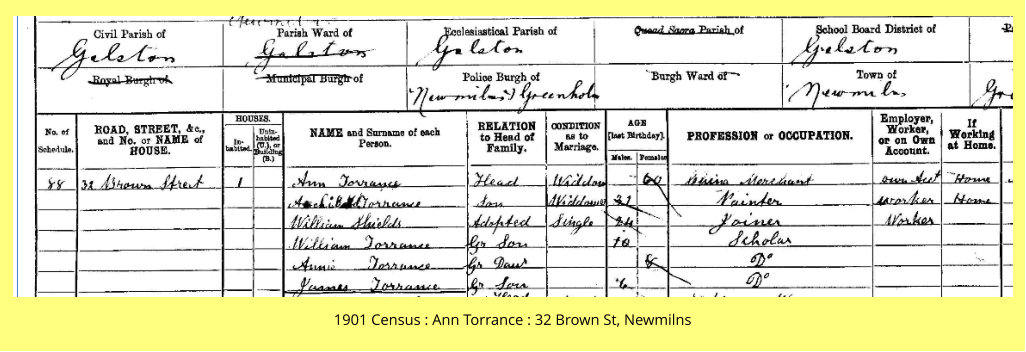 Civil Parish of Parish Ward of Ecclesiastical Parish of Quoad Sacra Parish of School Board District of
Galston Galston Galston Galston
Royal Burgh of Municipal Burgh of Police Burgh of Burgh Ward of Town of
Newmilns & Greenholm Newmilns
No. of Schedule. ROAD, STREET, &c., and No. or NAME of HOUSE. HOUSES. Inhabited. Uninhabited (U.), or Building (B.) NAME and Surname of each Person. RELATION to Head of Family. CONDITION as to Marriage. AGE [last Birthday]. Males. Females. PROFESSION or OCCUPATION. Employer, Worker, or on Own Account. If Working at Home.
88 32 Brown Street 1 Ann Torrance Head Widow 60 China Merchant own Acct Home
Archibald Torrance Son Widower Painter worker Home
William Shields Adopted Single 24 Joiner Worker
William Torrance Gr Son 10 Scholar
Annie Torrance Gr Daur 8 Do
James Torrance Gr Son 6 Do
1901 Census : Ann Torrance : 32 Brown St, Newmilns